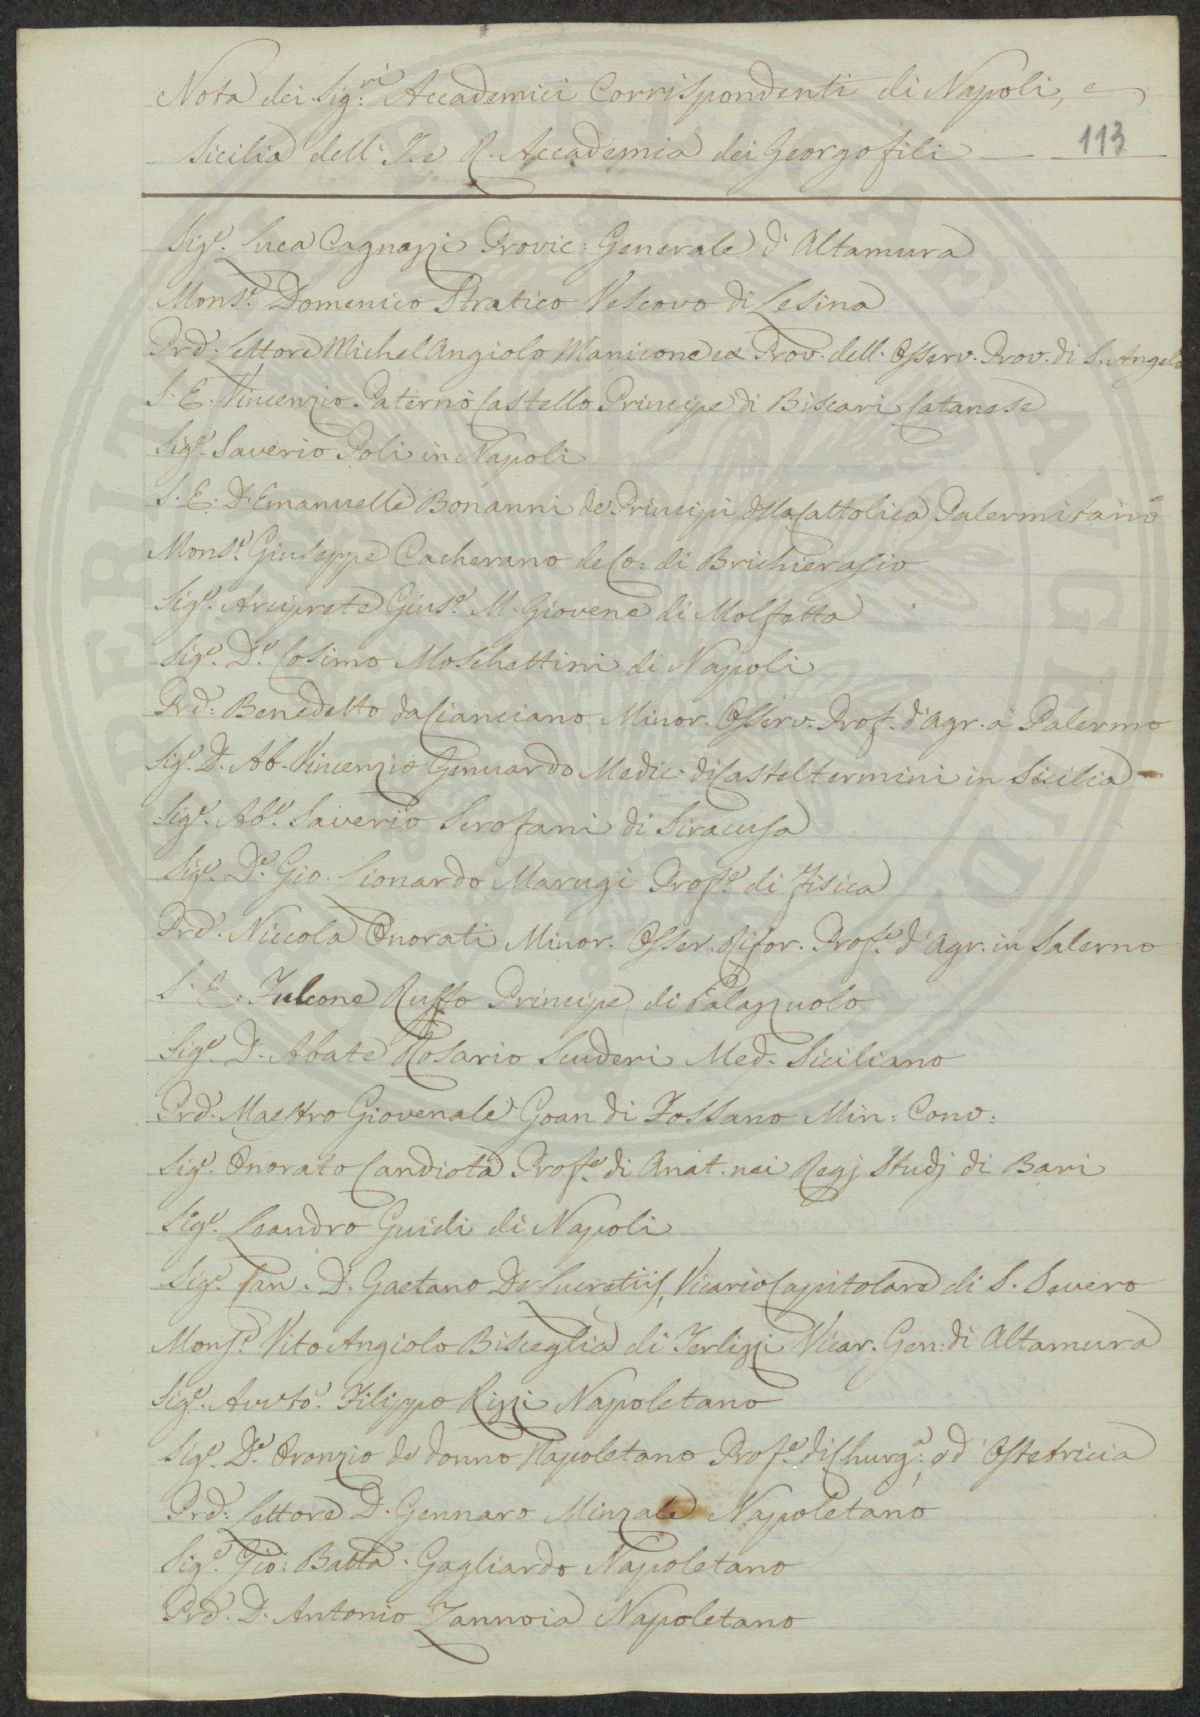 Nota dei Sig:ri Accademici Corrispondenti di Napoli, e
Sicilia dell' I. e R. Accademia dei Georgofili
113
Sige. Luca Cagnazzi Provic: Generale d' Altamura
Monse. Domenico Stratico Vescovo di Lesina
Prd: Lettore Michel Angiolo Manicone ex Prov. dell. Osserv. Prov. di S. Angelo
S. E. Vincenzio Paternò Castello Principe di Biscari Catanese
Sige. Saverio Poli in Napoli
S. E. D. Emanuelle Bonanni de' Principi della Cattolica Palermitano
Monse. Giuseppe Cacherano de Co: di Brichierasio
Sige. Arciprete Giuse. M. Giovene di Molfetta
Sige. De. Cosimo Moschettini di Napoli
Prd: Benedetto da Cianciano Minor. Osserv. Prof. d'Agr. a Palermo
Sige. D. Ab. Vincenzio Genuardo Medic: di Casteltermini in Sicilia
Sige. Abe. Saverio Scrofani di Siracusa
Sige. De. Gio. Lionardo Marugi Profe. di Fisica
Prd. Niccola Onorati Minor. Osser. Rifor. Profe. d'Agr. in Salerno
S. E. Fulcone Ruffo Principe di Palazzuolo
Sige. D. Abate Rosario Scuderi Med. Siciliano
Prd. Maestro Giovenale Goan di Fossano Min: Conv:
Sige. Onorato Candiota Profe. di Anat. nei Regj Studj di Bari
Sige. Leandro Guidi di Napoli
Sige. Can. D. Gaetano De Lucretiis, Vicario Capitolare di S. Severo
Monse. Vito Angiolo Bisceglia di Terlizzi Vicar. Gen: di Altamura
Sige. Avvto. Filippo Rizzi Napoletano
Sige. De. Oronzio de donno Napoletano Profe. di Churga: ed' Ostetricia
Prd: Lettore D. Gennaro Minzale Napoletano
Sige. Gio: Batta. Gagliardo Napoletano
Prd. D. Antonio Zannoia Napoletano